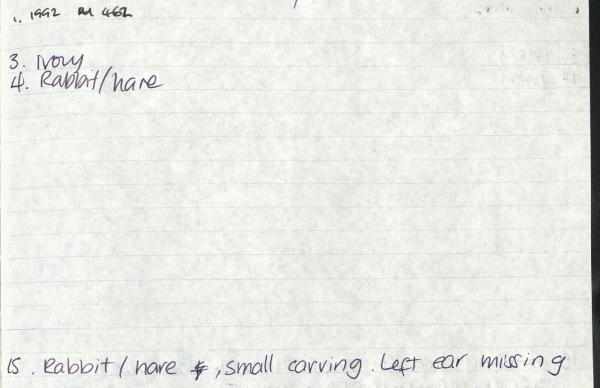 1. 1992 Rd 462
3. Ivory
4. Rabbit/hare
15. Rabbit/hare , small carving. Left ear missing